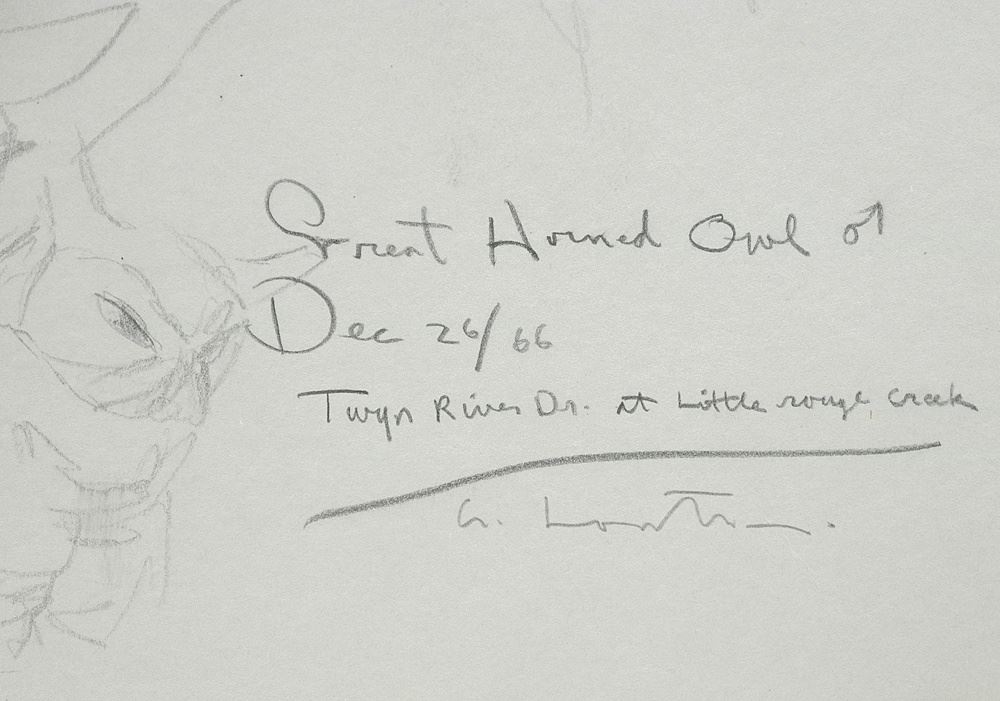 Great Horned Owl ♂
Dec 26/66
Twyn Rivers Dr. at Little rouge Creek
G. Lowther.